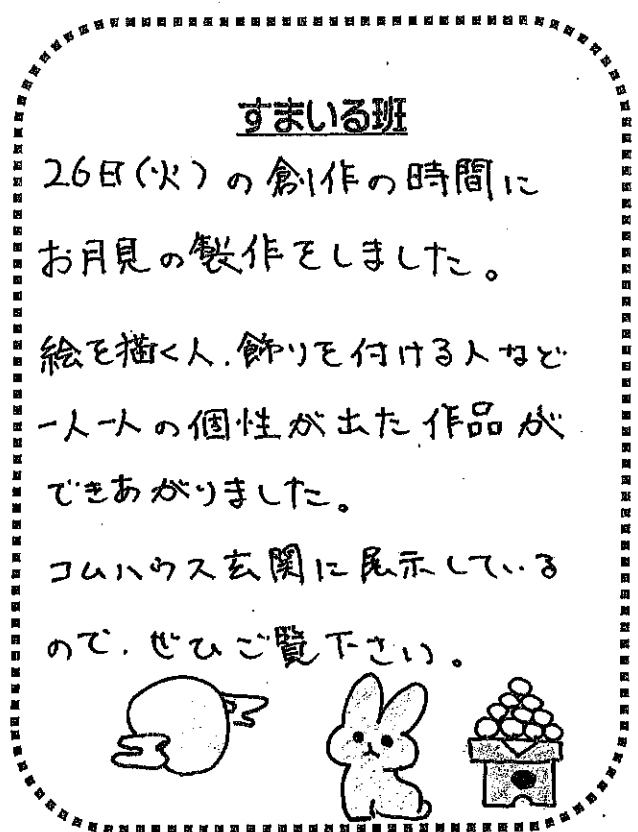 すまいる班
26日(火)の創作の時間に
お月見の製作をしました。
絵を描く人、飾りを付ける人など
一人一人の個性が出た作品が
できあがりました。
コムハウス玄関に展示している
ので、ぜひご覧下さい。